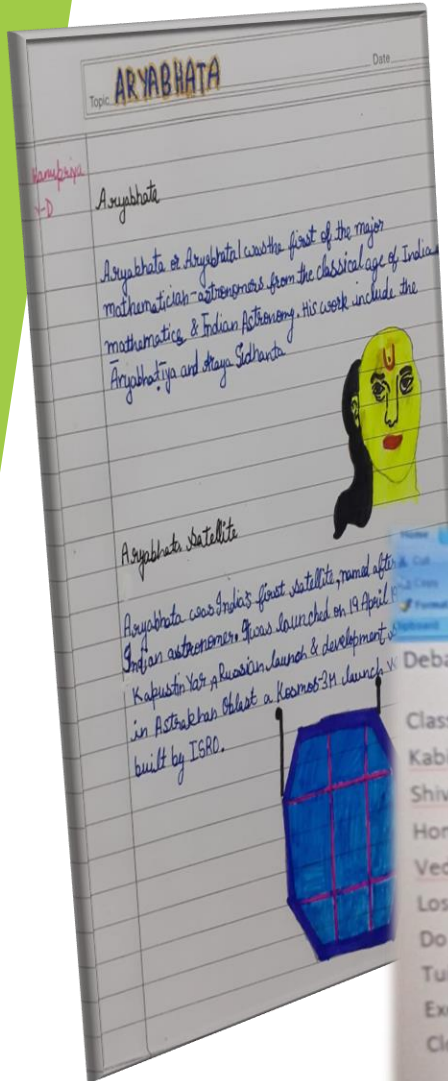 Topic ARYABHATA
Date
V-D
Aryabhata
Aryabhata or Aryabhata I was the first of the major
mathematician-astronomers from the classical age of Indian
mathematics & Indian Astronomy. His work include the
Āryabhaṭīya and Araya Sidhanta
Aryabhata Satellite
Aryabhata was India's first satellite, named after
Indian astronomer. It was launched on 19 April
Kapustin Yar, A Russian launch & development
in Astrakhan Oblast a Kosmos-3M launch
built by ISRO.
Home
Cut
Copy
Format
Clipboard
Deba
Class
Kabi
Shiv
Hon
Ved
Los
Do
Tu
Ex
Cl